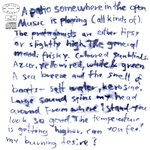 A patio somewhere in the open
Music is playing (all kinds of).
The protagonists are either tipsy
or slightly high. The general
mood: frisky. Coloured sunblinds
Azzo, yellow red, white green
A sea breeze and the smell of
boats – salt water kerosine.
Large sound spins my head
around from where I stand. You
look so good. The temperature
is getting higher, can you feel
my burning desire?